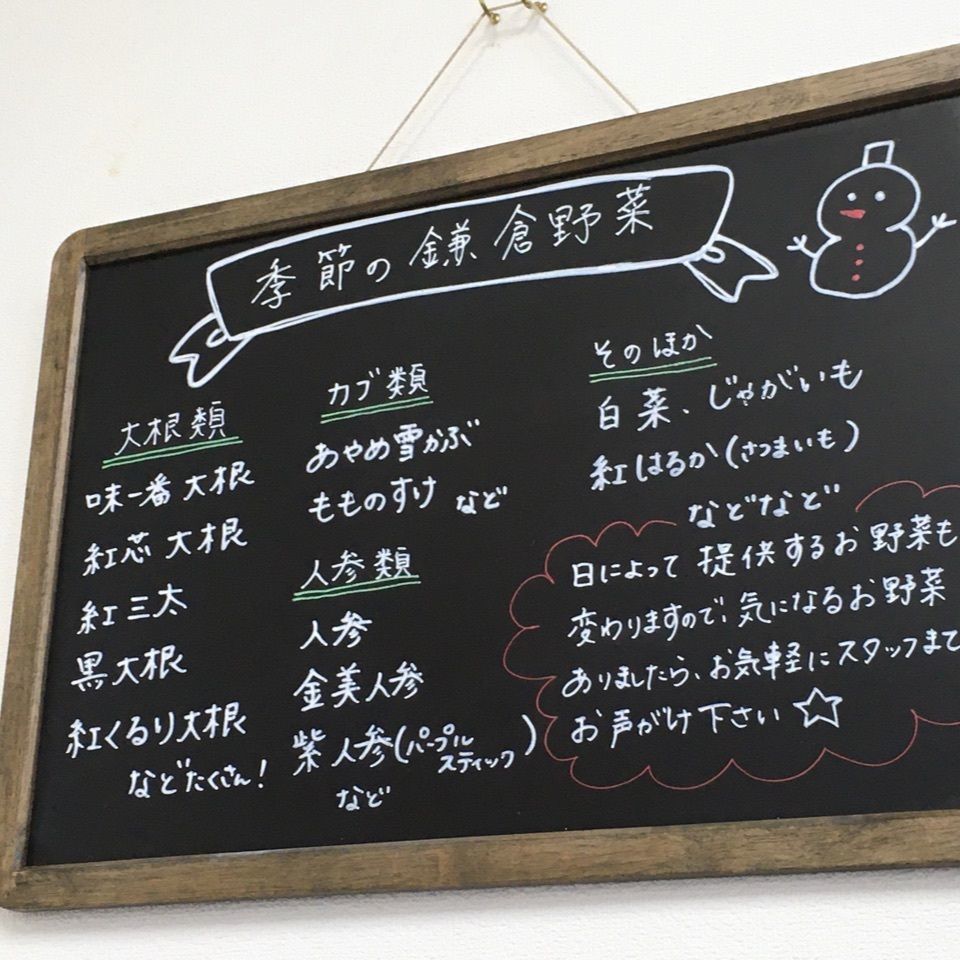 季節の鎌倉野菜
大根類
味一番大根
紅芯大根
紅三太
黒大根
紅くるり大根
などたくさん!
カブ類
あやめ雪かぶ
もものすけ など
人参類
人参
金美人参
紫人参(パープル
スティック)
など
そのほか
白菜、じゃがいも
紅はるか(さつまいも)
などなど
日によって提供するお野菜も
変わりますので、気になるお野菜
ありましたら、お気軽にスタッフまで
お声がけ下さい☆